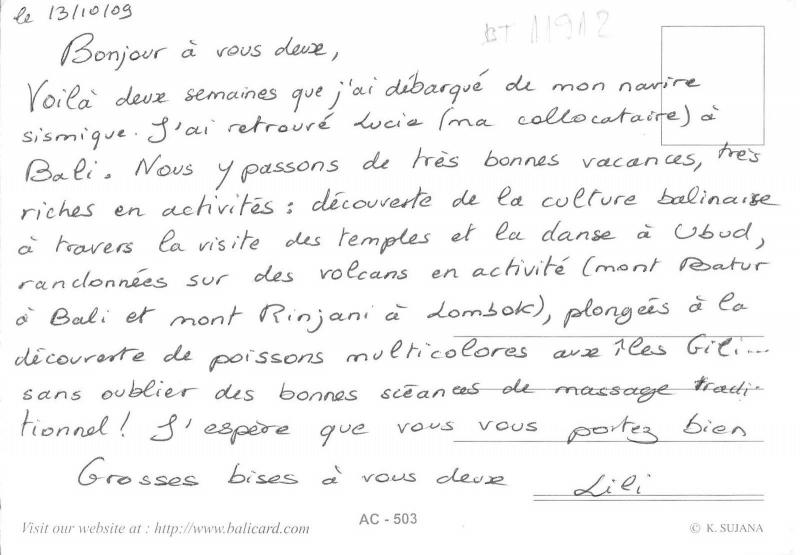 le 13/10/09
BT 11912
Bonjour à vous deux,
Voilà deux semaines que j'ai débarqué de mon navire
sismique. J'ai retrouvé Lucie (ma collocataire) à
Bali. Nous y passons de très bonnes vacances, très
riches en activités : découverte de la culture balinaise
à travers la visite des temples et la danse à Ubud,
randonnées sur des volcans en activité (mont Batur
à Bali et mont Rinjani à Lombok), plongées à la
découverte de poissons multicolores aux îles Gili...
sans oublier des bonnes scéances de massage tradi-
tionnel ! J'espère que vous vous portez bien
Grosses bises à vous deux Lili
Visit our website at : http://www.balicard.com AC - 503 © K. SUJANA